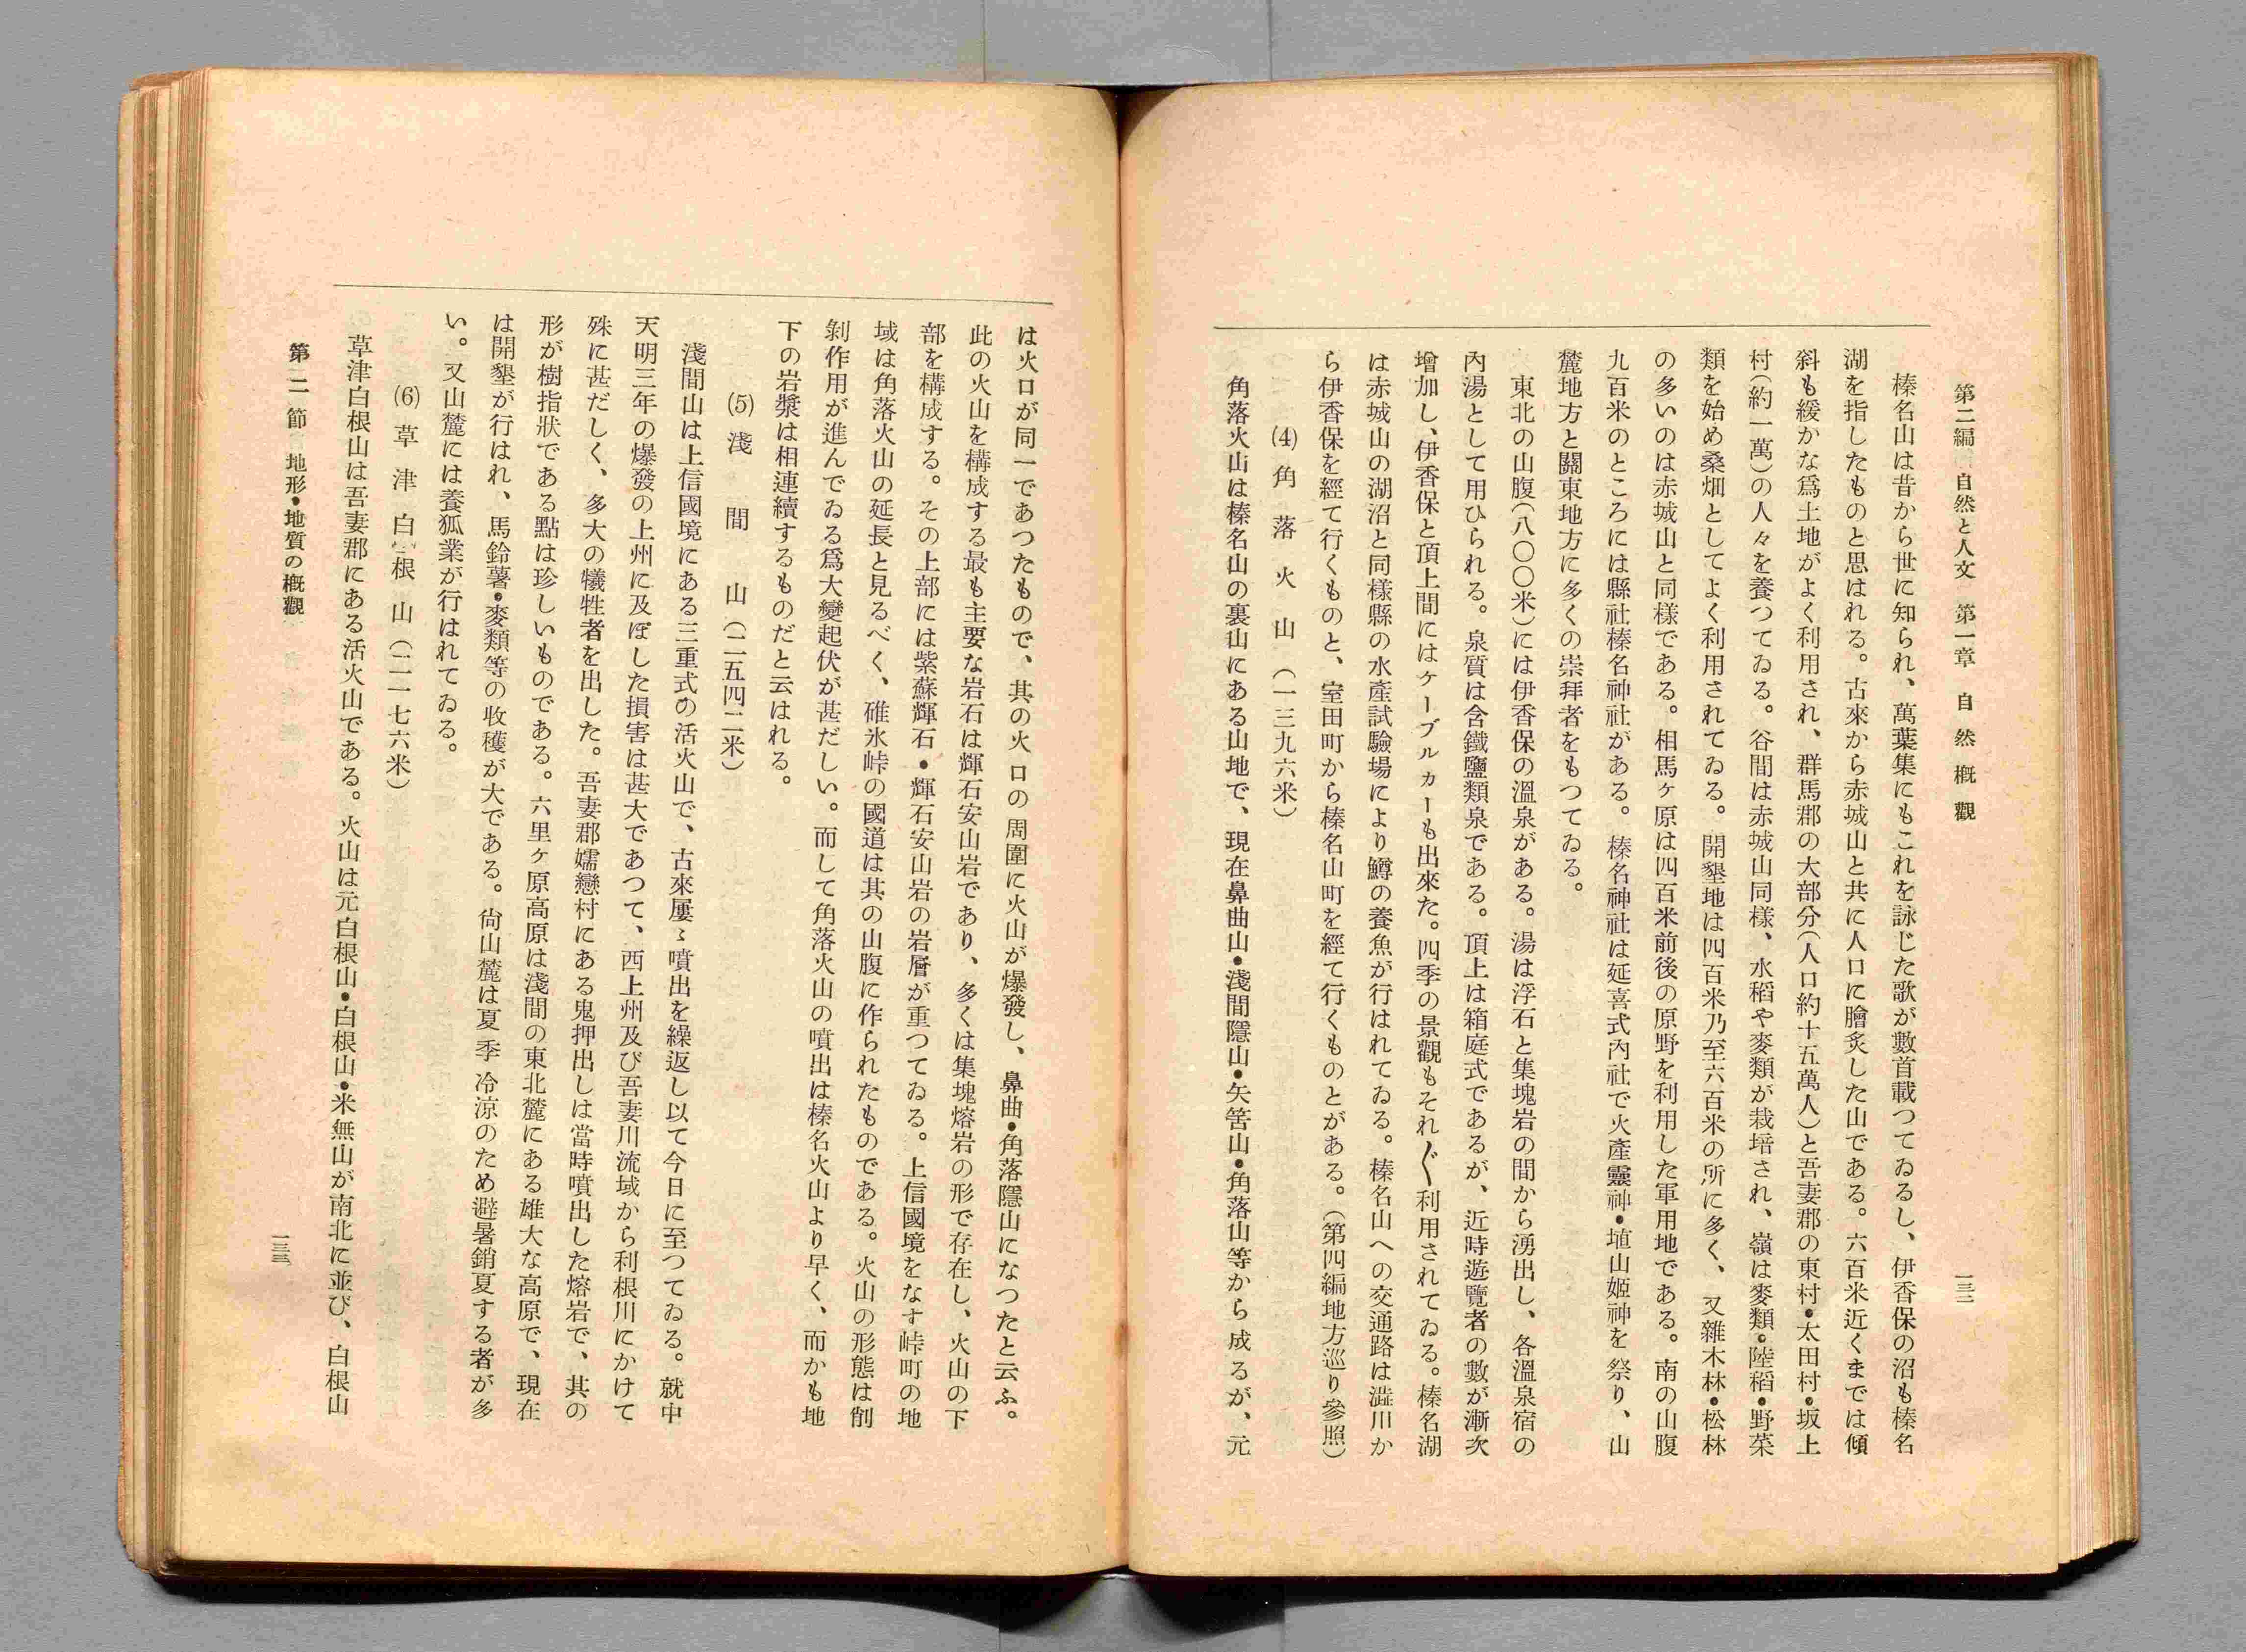 第二編 自然と人文 第一章 自然概觀
一三二
榛名山は昔から世に知られ、萬葉集にもこれを詠じた歌が數首載つてゐるし、伊香保の沼も榛名
湖を指したものと思はれる。古來から赤城山と共に人口に膾炙した山である。六百米近くまでは傾
斜も緩かな爲土地がよく利用され、群馬郡の大部分(人口約十五萬人)と吾妻郡の東村・太田村・坂上
村(約一萬)の人々を養つてゐる。谷間は赤城山同樣、水稻や麥類が栽培され、嶺は麥類・陸稻・野菜
類を始め桑畑としてよく利用されてゐる。開墾地は四百米乃至六百米の所に多く、又雜木林・松林
の多いのは赤城山と同樣である。相馬ヶ原は四百米前後の原野を利用した軍用地である。南の山腹
九百米のところには縣社榛名神社がある。榛名神社は延喜式內社で火產靈神・埴山姬神を祭り、山
麓地方と關東地方に多くの崇拜者をもつてゐる。
東北の山腹(八〇〇米)には伊香保の溫泉がある。湯は浮石と集塊岩の間から湧出し、各溫泉宿の
內湯として用ひられる。泉質は含鐵鹽類泉である。頂上は箱庭式であるが、近時遊覽者の數が漸次
增加し、伊香保と頂上間にはケーブルカーも出來た。四季の景觀もそれ〴〵利用されてゐる。榛名湖
は赤城山の湖沼と同樣縣の水產試驗場により鱒の養魚が行はれてゐる。榛名山への交通路は澁川か
ら伊香保を經て行くものと、室田町から榛名山町を經て行くものとがある。(第四編地方巡り參照)
(4) 角落火山 (一三九六米)
角落火山は榛名山の裏山にある山地で、現在鼻曲山・淺間隱山・矢筈山・角落山等から成るが、元
は火口が同一であつたもので、其の火口の周圍に火山が爆發し、鼻曲・角落隱山になつたと云ふ。
此の火山を構成する最も主要な岩石は輝石安山岩であり、多くは集塊熔岩の形で存在し、火山の下
部を構成する。その上部には紫蘇輝石・輝石安山岩の岩層が重つてゐる。上信國境をなす峠町の地
域は角落火山の延長と見るべく、碓氷峠の國道は其の山腹に作られたものである。火山の形態は削
剝作用が進んでゐる爲大變起伏が甚だしい。而して角落火山の噴出は榛名火山より早く、而かも地
下の岩漿は相連續するものだと云はれる。
(5) 淺間山(二五四二米)
淺間山は上信國境にある三重式の活火山で、古來屢〻噴出を繰返し以て今日に至つてゐる。就中
天明三年の爆發の上州に及ぼした損害は甚大であつて、西上州及び吾妻川流域から利根川にかけて
殊に甚だしく、多大の犧牲者を出した。吾妻郡嬬戀村にある鬼押出しは當時噴出した熔岩で、其の
形が樹指狀である點は珍しいものである。六里ヶ原高原は淺間の東北麓にある雄大な高原で、現在
は開墾が行はれ、馬鈴薯・麥類等の收穫が大である。尙山麓は夏季冷涼のため避暑銷夏する者が多
い。又山麓には養狐業が行はれてゐる。
(6) 草津白根山(二一七六米)
草津白根山は吾妻郡にある活火山である。火山は元白根山・白根山・米無山が南北に並び、白根山
第二節 地形・地質の槪觀
一三三